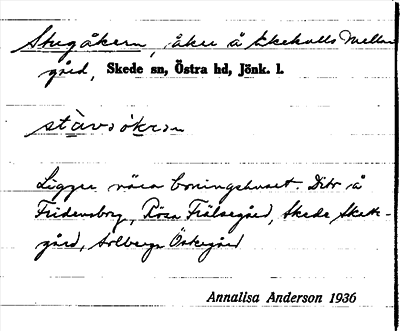 Stugåkern, åker å Ekekulls Mellan-
gård, Skede sn, Östra hd, Jönk. l.
Ligger nära boningshuset. Ditr å
Fridensborg, Rösa Frälsegård, Skede Skatte-
gård, Solberga Östregård
Annalisa Anderson 1936